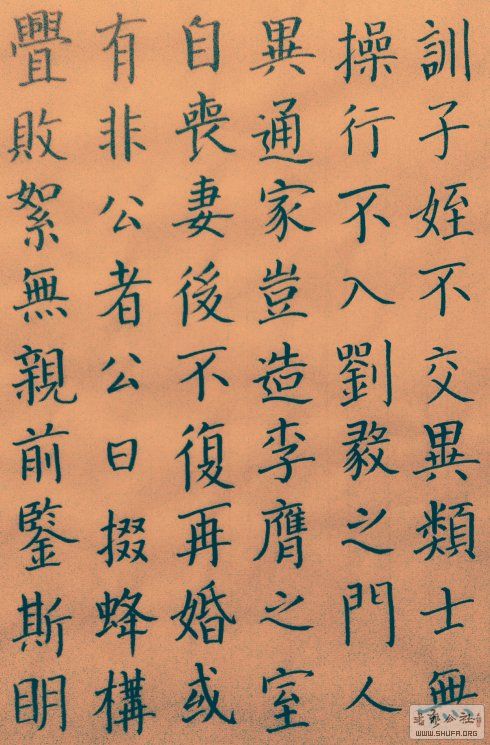 訓子姪不交異類士無
操行不入劉毅之門人
異通家豈造李膺之室
自喪妻後不復再婚或
有非公者公曰掇蜂構
舋敗絮無親前鑒斯明
WWW.SHUFA.ORG